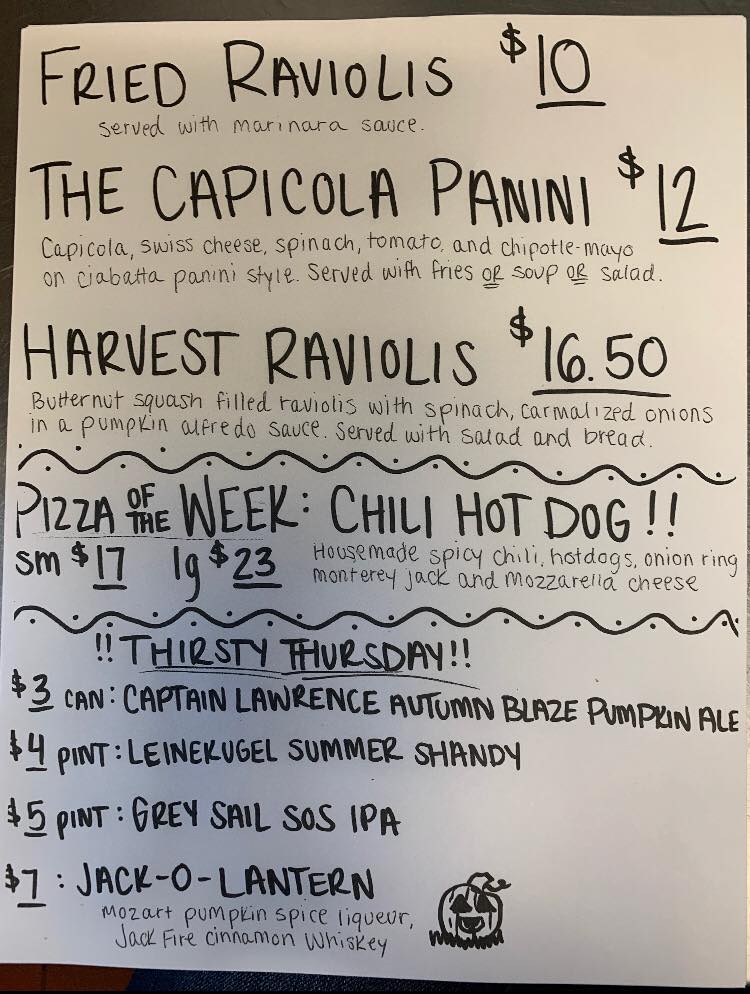 FRIED RAVIOLIS $10
served with marinara sauce.
THE CAPICOLA PANINI $12
Capicola, swiss cheese, spinach, tomato, and chipotle-mayo
on ciabatta panini style. Served with fries OR soup OR salad.
HARVEST RAVIOLIS $16.50
Butternut squash filled raviolis with spinach, carmalized onions
in a pumpkin alfredo sauce. Served with salad and bread.
PIZZA OF THE WEEK: CHILI HOT DOG!!
sm $17 lg $23 Housemade spicy chili, hotdogs, onion ring
monterey jack and mozzarella cheese
!! THIRSTY THURSDAY!!
$3 CAN: CAPTAIN LAWRENCE AUTUMN BLAZE PUMPKIN ALE
$4 PINT: LEINEKUGEL SUMMER SHANDY
$5 PINT: GREY SAIL SOS IPA
$7: JACK-O-LANTERN
Mozart pumpkin spice liqueur,
Jack Fire cinnamon whiskey